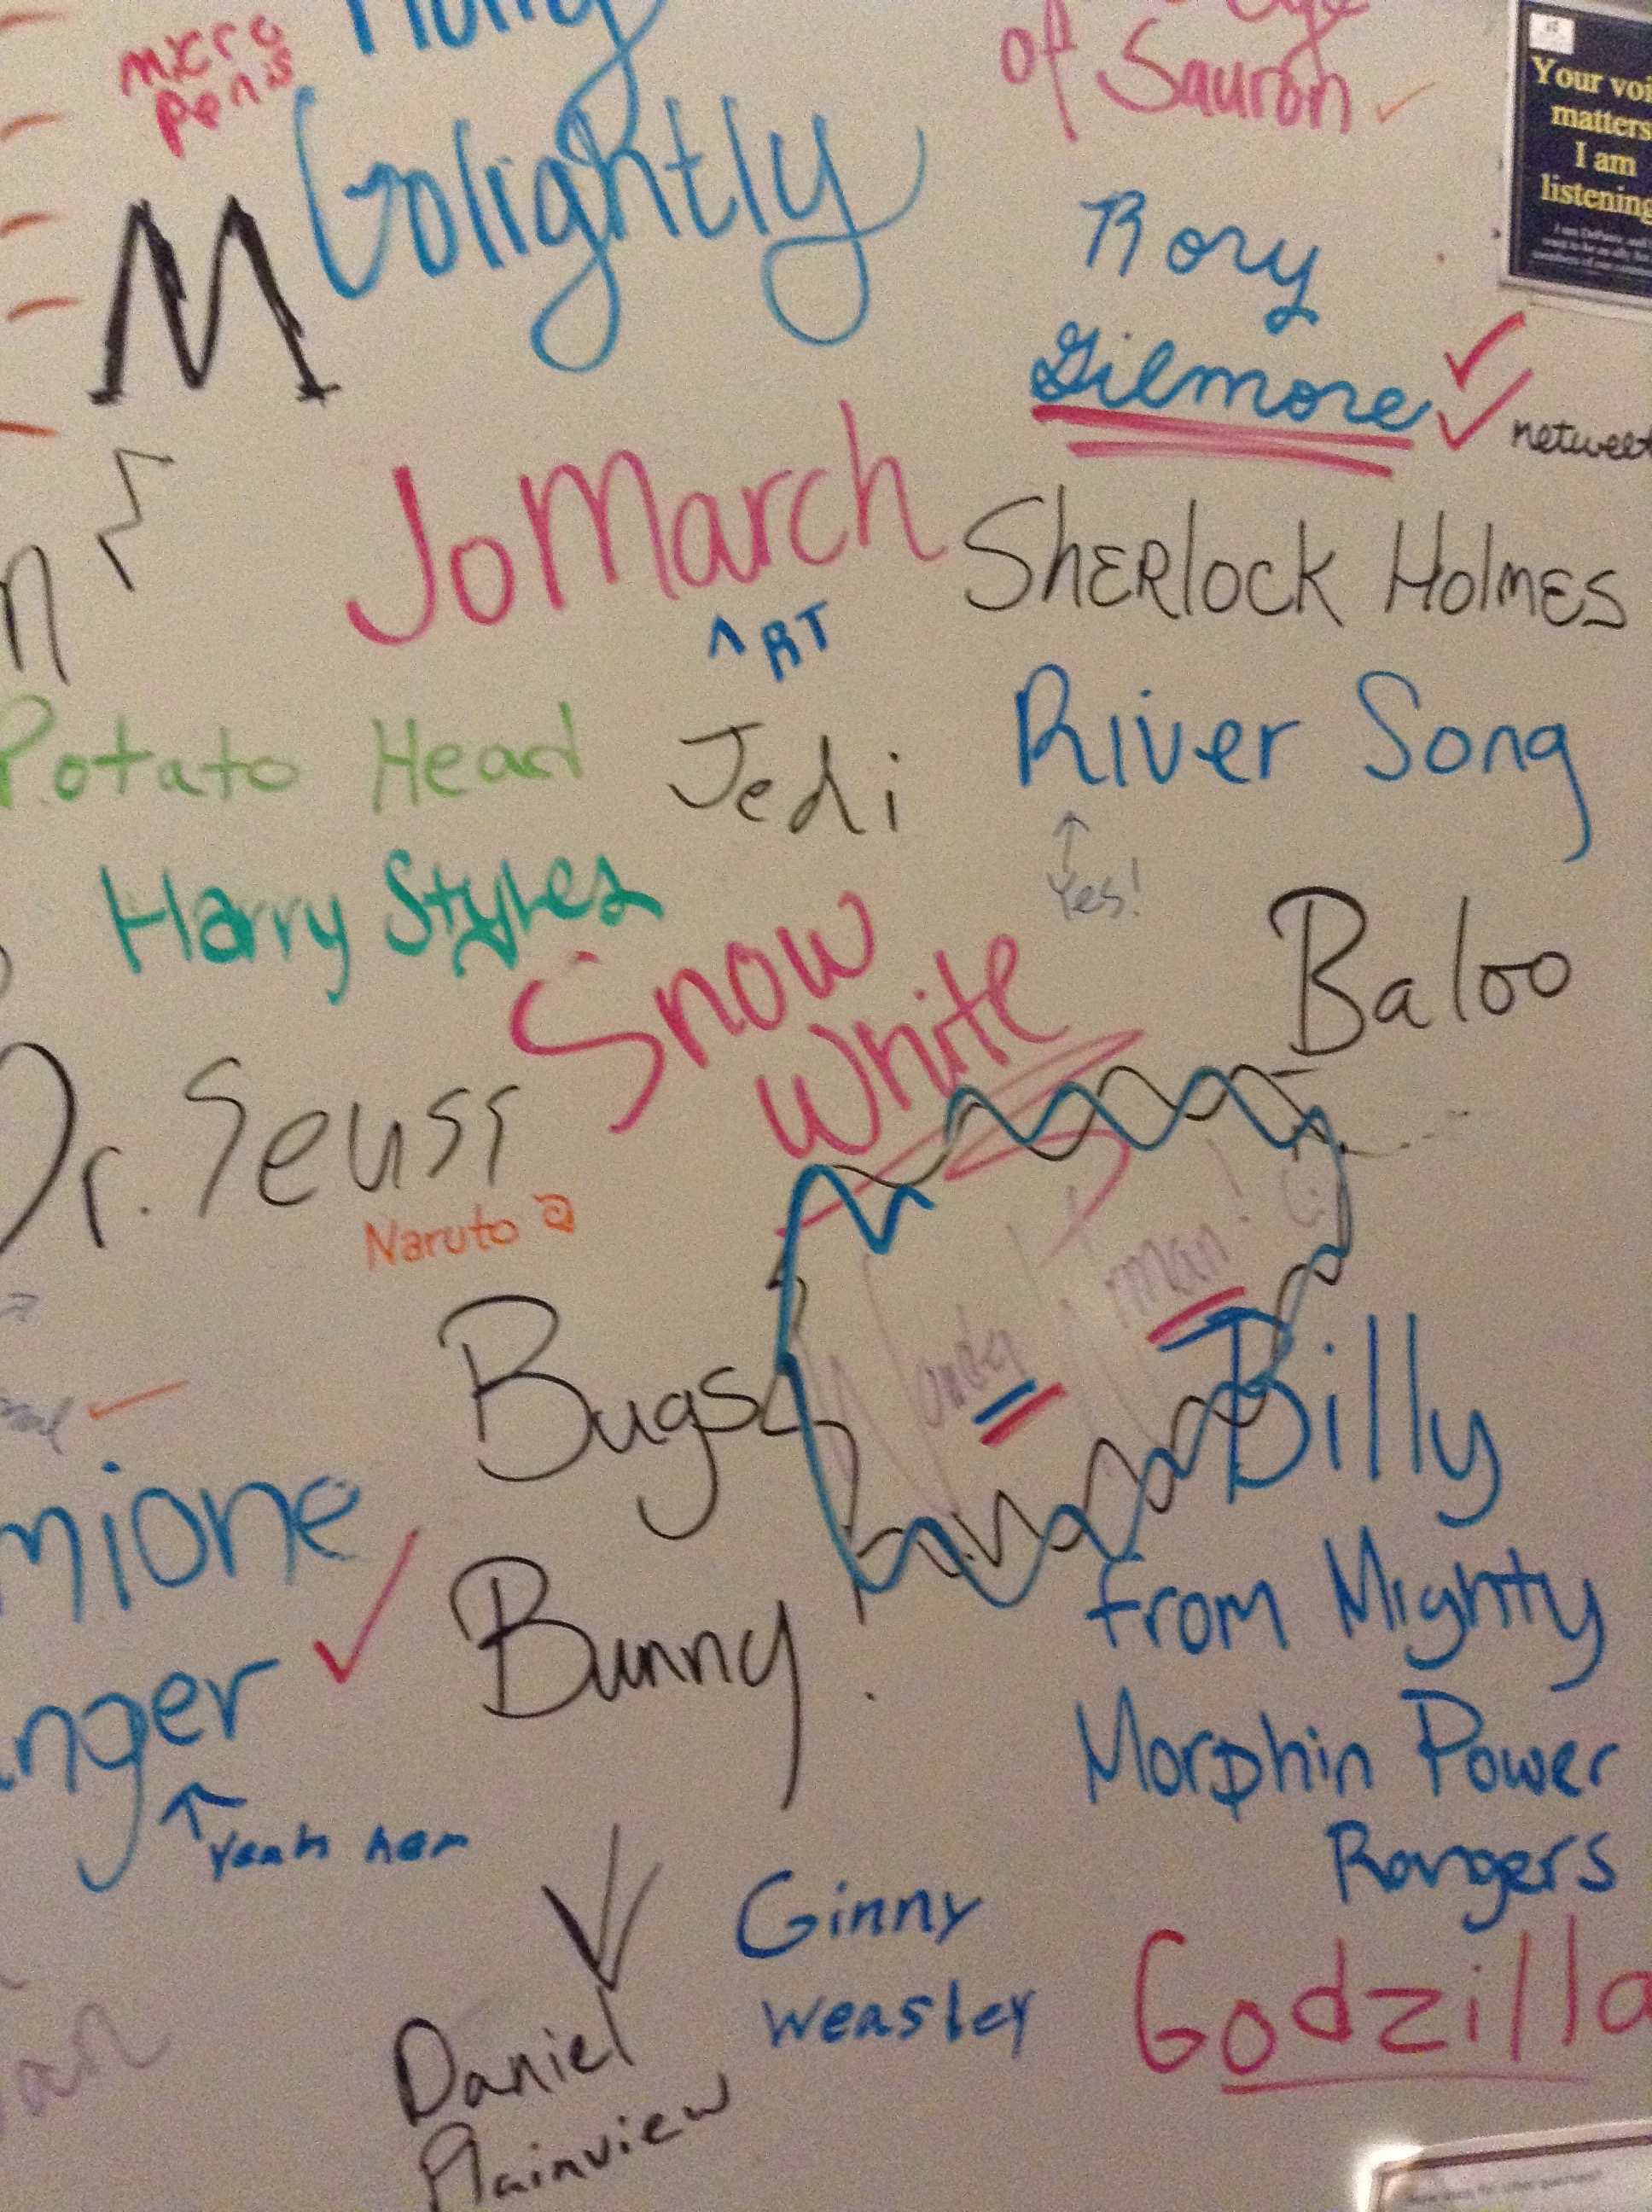 micro
penis
Golightly
M
of Sauron
Your
matters
I am
listening
Rory
Gilmore
Jo March
^ RT
Sherlock Holmes
Potato Head
Jedi
River Song
↑
Yes!
Harry Styles
Snow
White
Baloo
Dr. Seuss
Naruto
Wonder
man!
Bugs
Bunny
Billy
from Mighty
Morphin Power
Rangers
mione
nger
↑ Yeah her
Ginny
Weasley
Daniel
Plainview
Godzilla